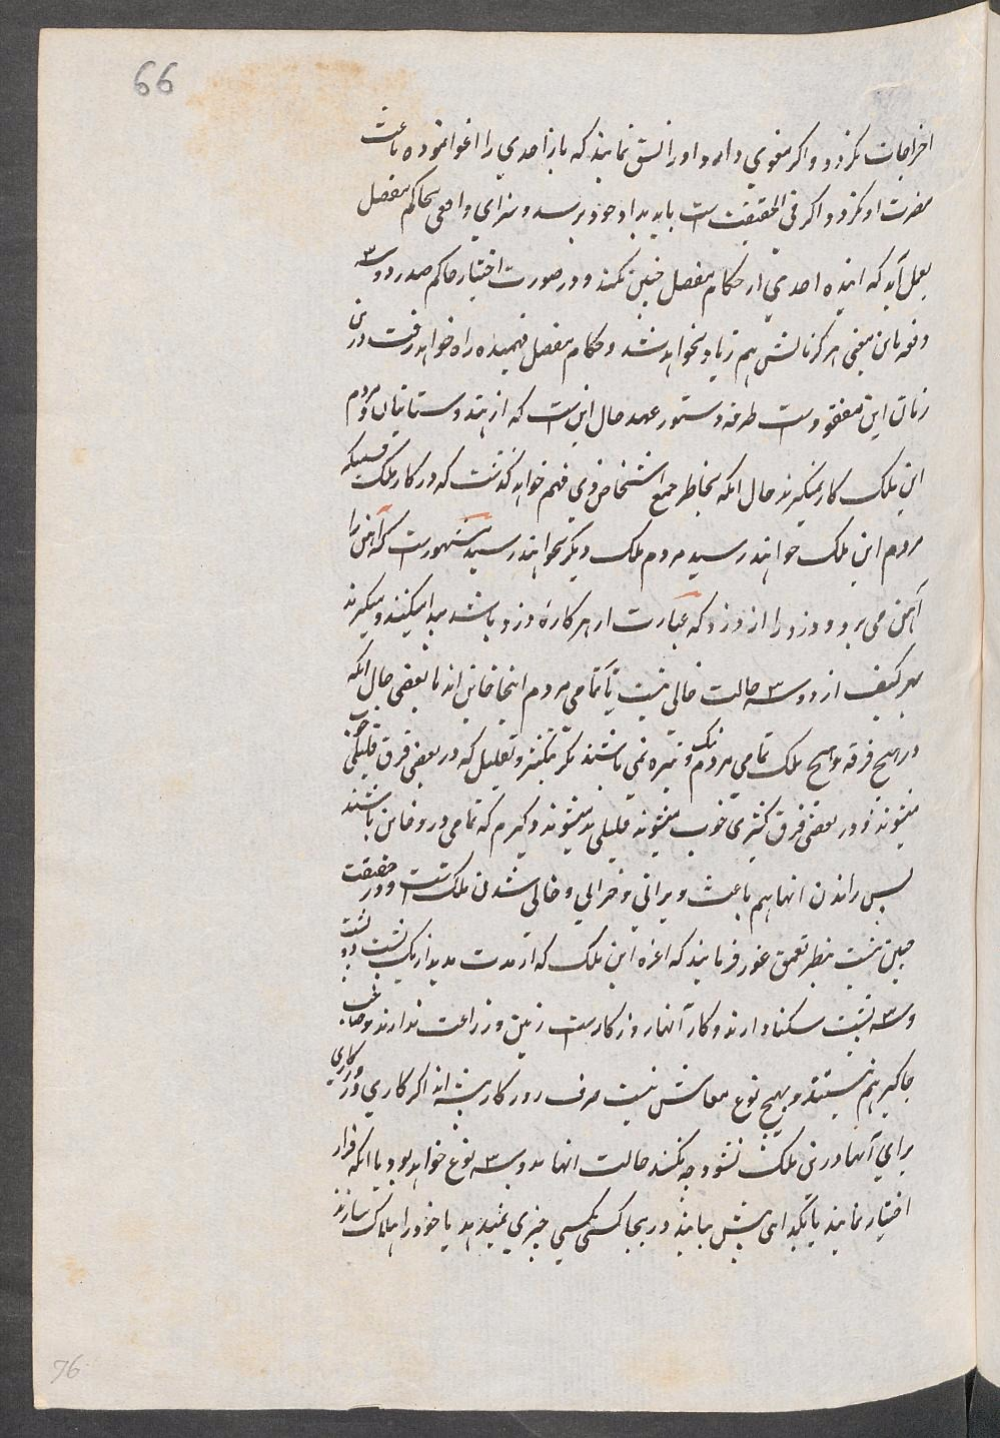 66
اخراجات نکردد و اکر مغوی دارد اورا نالش نمایند که باز احدی را اغوا نموده باعث
مضرت او نکردد و اکر فی الحقیقت است باید بداد خود برسد و سزای واقعی بحاکم مفصل
بعمل آید که اینده احدی از حکام مفصل چنین نکند و در صورت اختیار حاکم صدر دو سه
دفعه باین معنی هرکز نالش هم زیاد نخواهد شد و حکام مفصل فهمیده راه خواهد رفت درین
زمان این مفقود است طرفه دستور عهد حال این است که از هندوستانیان و مردم
این ملک کار نمیکیرند حال انکه بخاطر جمع اشخاص ذی فهم خواهد کذشت که در کار ملک قسمیکه
مردم این ملک خواهند رسید مردم ملک دیکر نخواهند رسید مشهور است که آهن را
آهن می برد و دزد را از دزد که عبارت از هرکاره دزد باشد پیدا میکنند و میکیرند
بهر کیف از دو سه حالت خالی نیست یا تمامی مردم اینجا خاین اند یا بعضی حال انکه
در هیچ فرقه و هیچ ملک تمامی مردم نیک و تیره نمی باشند مکر بتکثیر و تقلیل که در بعضی فرق قلیلی خوب
میشوند و در بعضی فرق کثیری خوب میشوند قلیلی بد میشوند و کیرم که تمامی دزد و خاین باشند
پس راندن انها هم باعث ویرانی و خرابی و خالی شدن ملک است و در حقیقت
چنین نیست بنظر تعمق غور فرمایند که اعزه این ملک که از مدت مدید از یک پشت دو پشت
و سه پشت سکنا دارند و کار آنها روزکار است زمین و زراعت ندارند و صاحب
جاکیر هم نیستند و بهیچ نوع معاش نیست صرف روزکار پیشه اند اکر کاری و روزکاری
برای آنها درین ملک نشود چه بکنند حالت انها بدو سه نوع خواهد بود یا انکه فرار
اختیار نمایند یا بکدائی پیش بیایند درینجا کسی بکسی چیزی نمیدهد یا خود را هلاک سازند
76